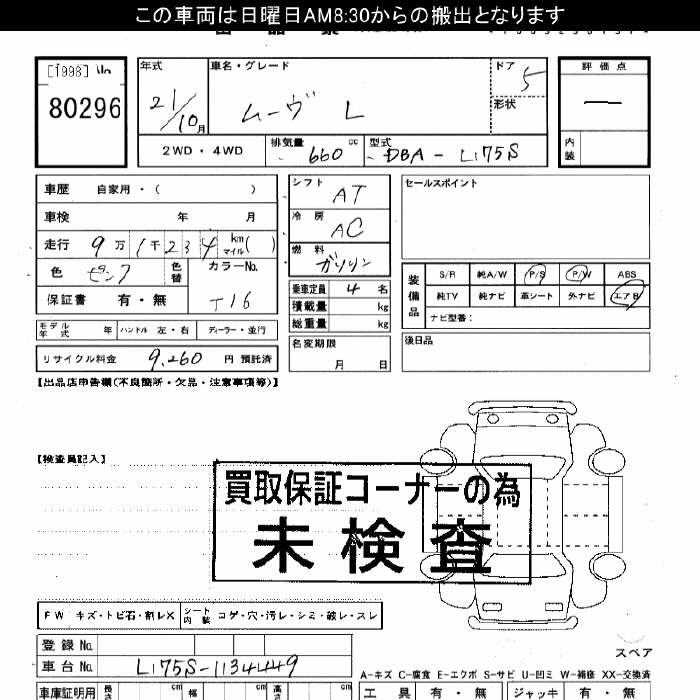 この車両は日曜日AM8:30からの搬出となります
[1998] No
80296
年式
21/10月
車名・グレード
ムーヴ L
ドア
5
形状
評価点
—
内装
2WD・4WD
排気量 660 cc
型式 DBA-L175S
車歴 自家用・( )
車検 年 月
走行 9万1千234 km マイル( )
色
色替
カラーNo.
T16
保証書 有・無
モデル年式 年 ハンドル 左・右 ディーラー・並行
リサイクル料金 9,260 円 預託済
シフト
AT
冷房
AC
燃料
ガソリン
乗車定員 4 名
積載量 kg
総重量 kg
名変期限
月 日
セールスポイント
装備品
S/R 純A/W P/S P/W ABS
純TV 純ナビ 革シート 外ナビ エアB
ナビ型番:
後日品
【出品店申告欄(不良箇所・欠品・注意事項等)】
【検査員記入】
買取保証コーナーの為
未検査
FW キズ・トビ石・割レX シート内装 コゲ・穴・汚レ・シミ・破レ・スレ
登録 No.
車台 No. L175S-1134449
車庫証明用 長さ cm 幅 cm 高さ cm
スペア
A-キズ C-腐食 E-エクボ S-サビ U-凹ミ W-補修 XX-交換済
工具 有・無 ジャッキ 有・無